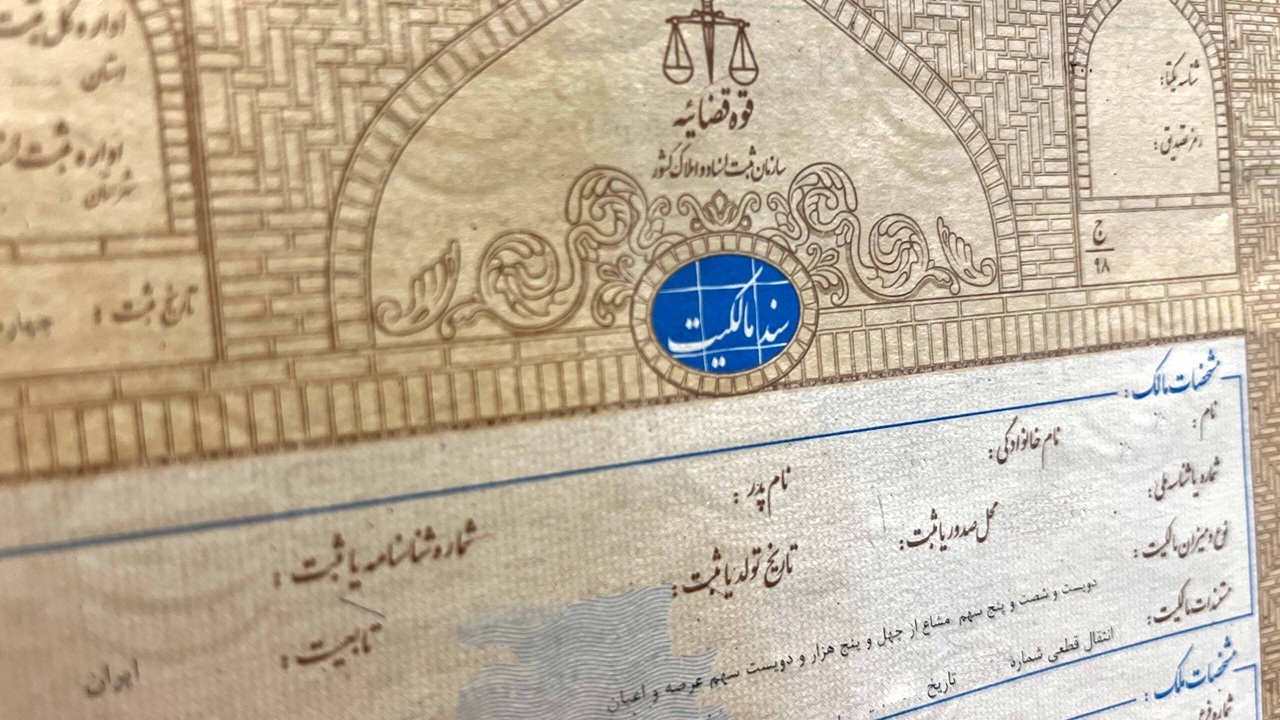 اداره کل ثبت
استان
اداره ثبت اسناد
شهرستان
تاریخ ثبت :
قوه قضائیه
سازمان ثبت اسناد و املاک کشور
سند مالکیت
شناسه یکتا :
رمز تصدیق :
ج
۹۸
مشخصات مالک :
نام :
نام خانوادگی :
نام پدر :
شماره شناسنامه یا ثبت :
شماره یا شناسه ملی :
محل صدور یا ثبت :
تاریخ تولد یا ثبت :
تابعیت :
ایران
نوع و میزان مالکیت :
دویست و شصت و پنج سهم مشاع از چهل و پنج هزار و دویست سهم عرصه و اعیان
مستندات مالکیت :
انتقال قطعی شماره
تاریخ
مشخصات ملک :